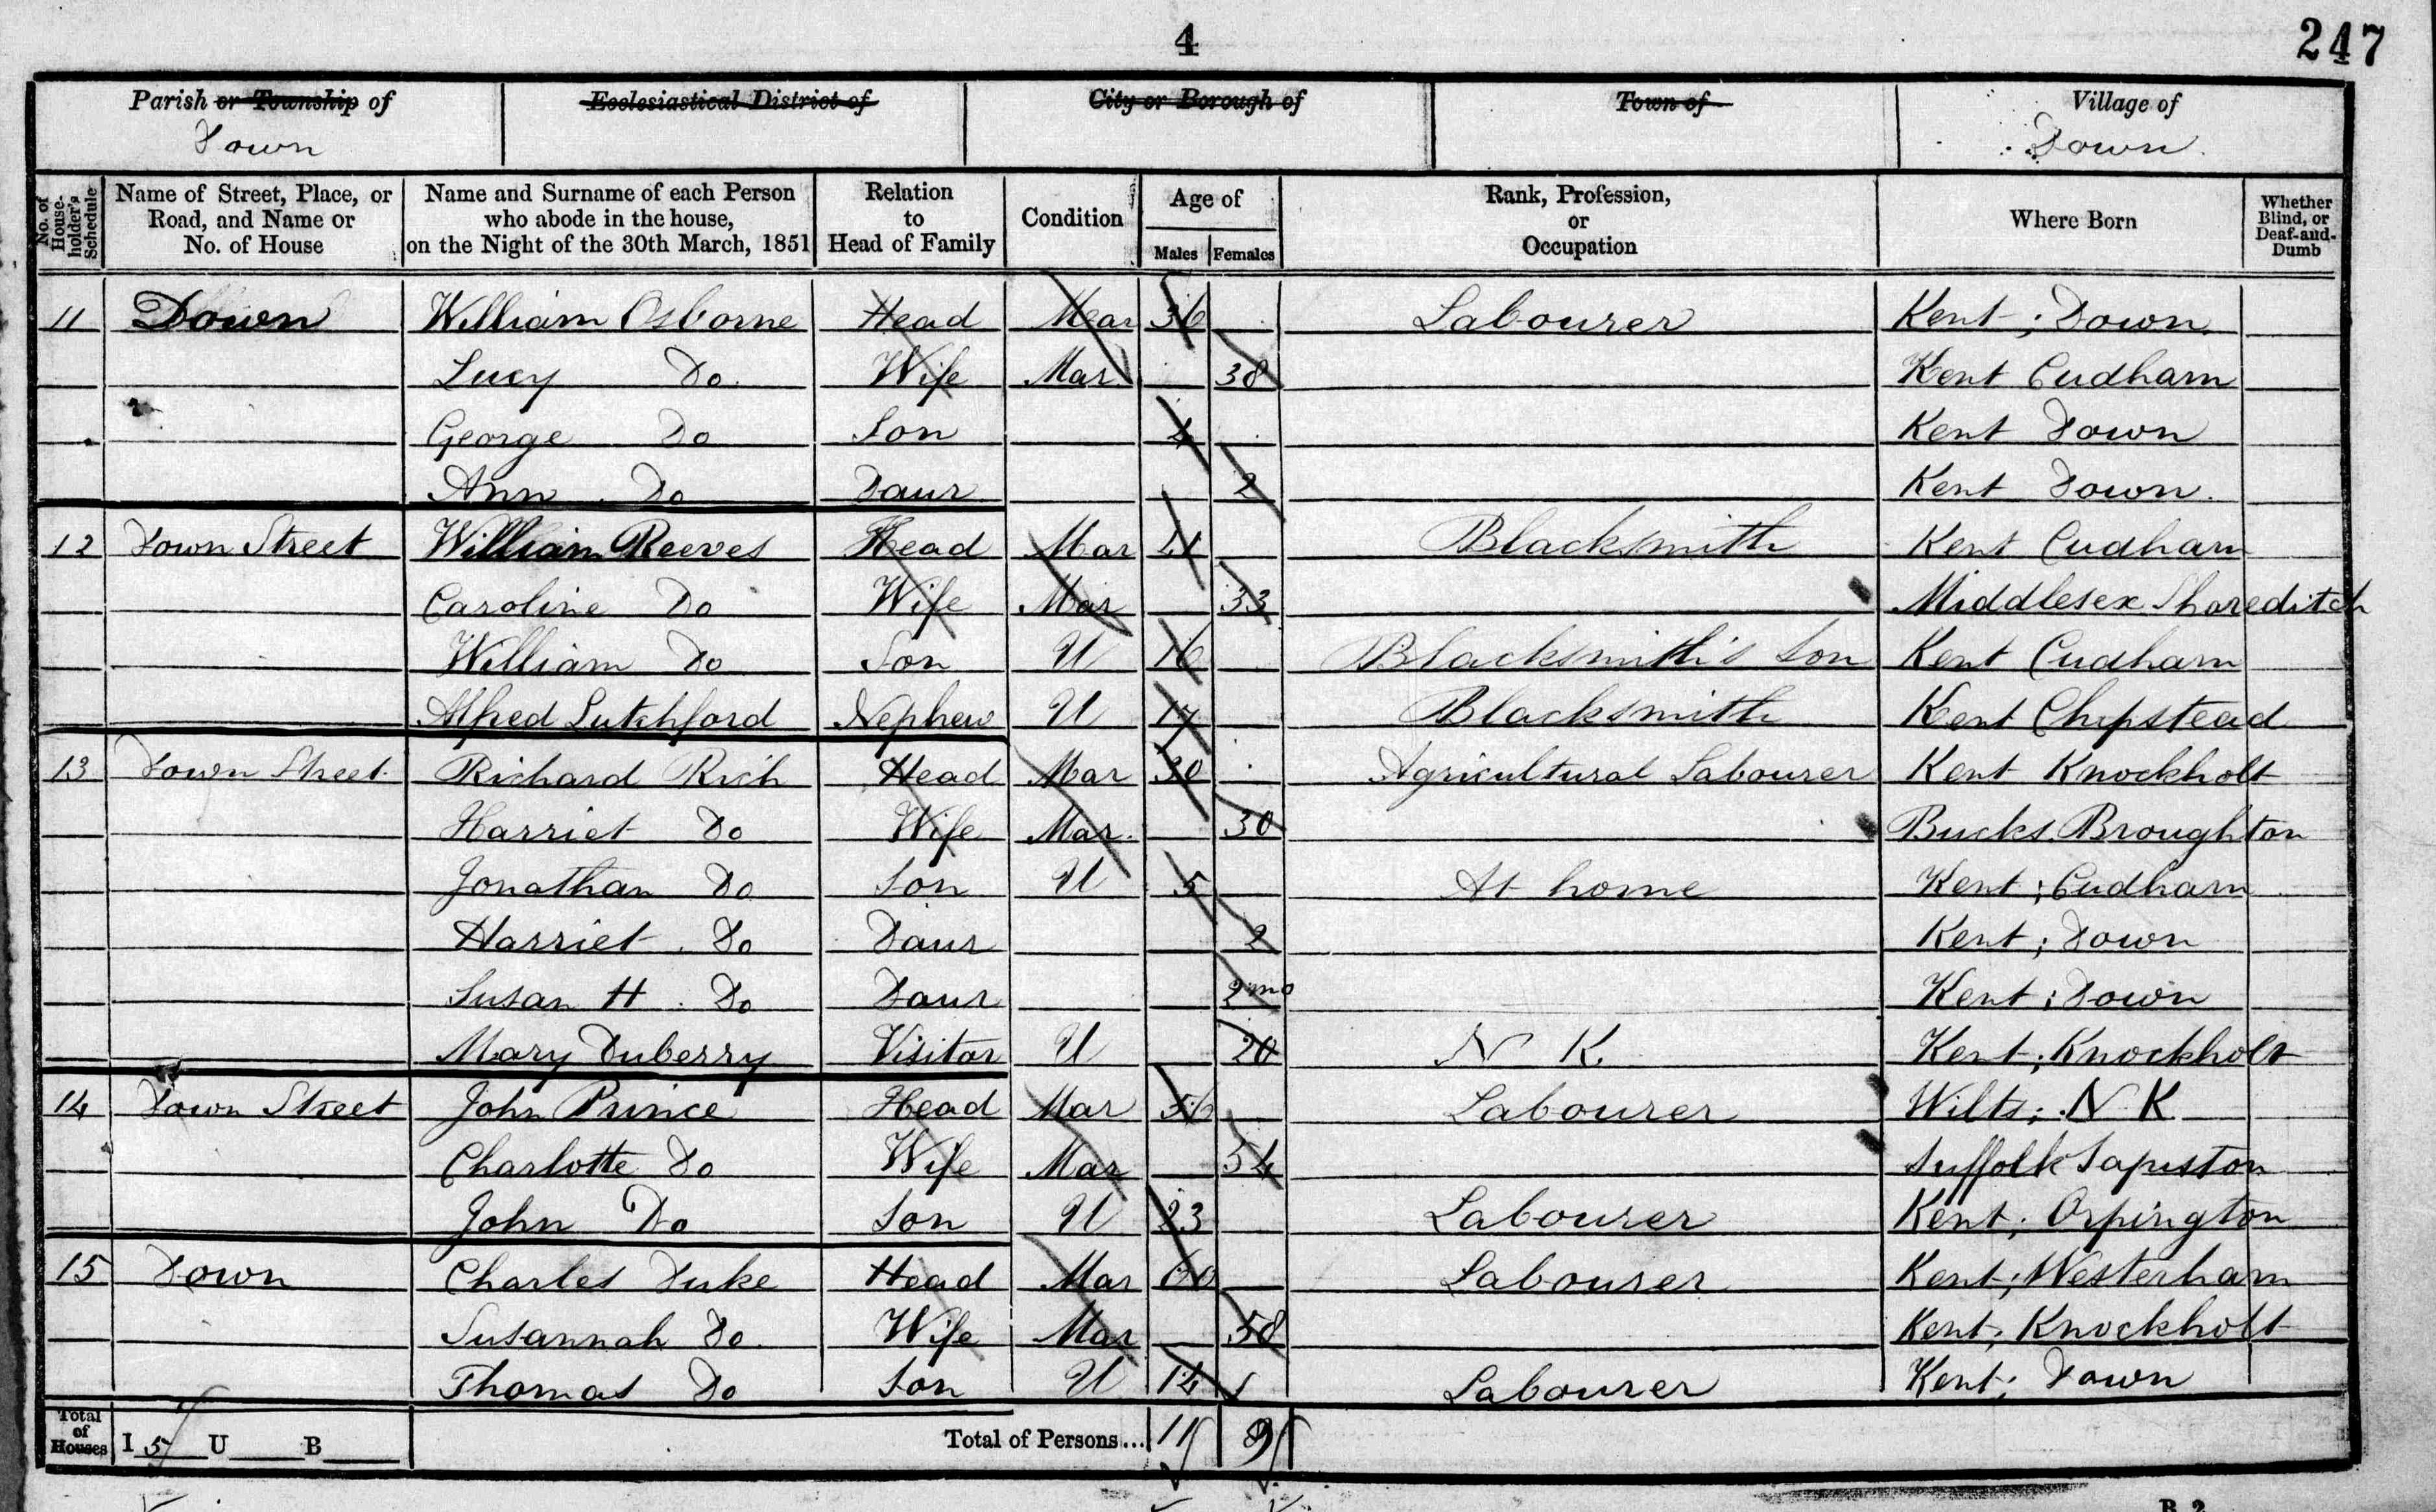 4
247
Parish or Township of
Down
Ecclesiastical District of
City or Borough of
Town of
Village of
Down
No. of House-holder's Schedule
Name of Street, Place, or Road, and Name or No. of House
Name and Surname of each Person who abode in the house, on the Night of the 30th March, 1851
Relation to Head of Family
Condition
Age of
Males
Females
Rank, Profession, or Occupation
Where Born
Whether Blind, or Deaf-and-Dumb
11 Down William Osborne Head Mar 36 Labourer Kent; Down
Lucy Do. Wife Mar. 38 Kent Cudham
George Do Son 4 Kent Down
Ann Do Daur 2 Kent Down.
12 Down Street William Reeves Head Mar 41 Blacksmith Kent Cudham
Caroline Do Wife Mar 33 Middlesex Shoreditch
William Do Son U 16 Blacksmith's Son Kent Cudham
Alfred Lutchford Nephew U 17 Blacksmith Kent Chipstead
13 Down Street Richard Rich Head Mar 30 Agricultural Labourer Kent Knockholt
Harriet Do Wife Mar. 30 Bucks. Broughton
Jonathan Do Son U 5 At home Kent; Cudham
Harriet Do Daur 2 Kent; Down
Susan H Do Daur 2 mo Kent; Down
Mary Duberry Visitor U 20 N K. Kent; Knockholt
14 Down Street John Prince Head Mar 56 Labourer Wilts; N K
Charlotte Do Wife Mar 54 Suffolk Sapiston
John Do Son U 23 Labourer Kent; Orpington
15 Down Charles Duke Head Mar 60 Labourer Kent; Westerham
Susannah Do. Wife Mar 58 Kent; Knockholt
Thomas Do Son U 14 Labourer Kent; Down
Total of Houses I 5 U B Total of Persons... 11 9
B 2